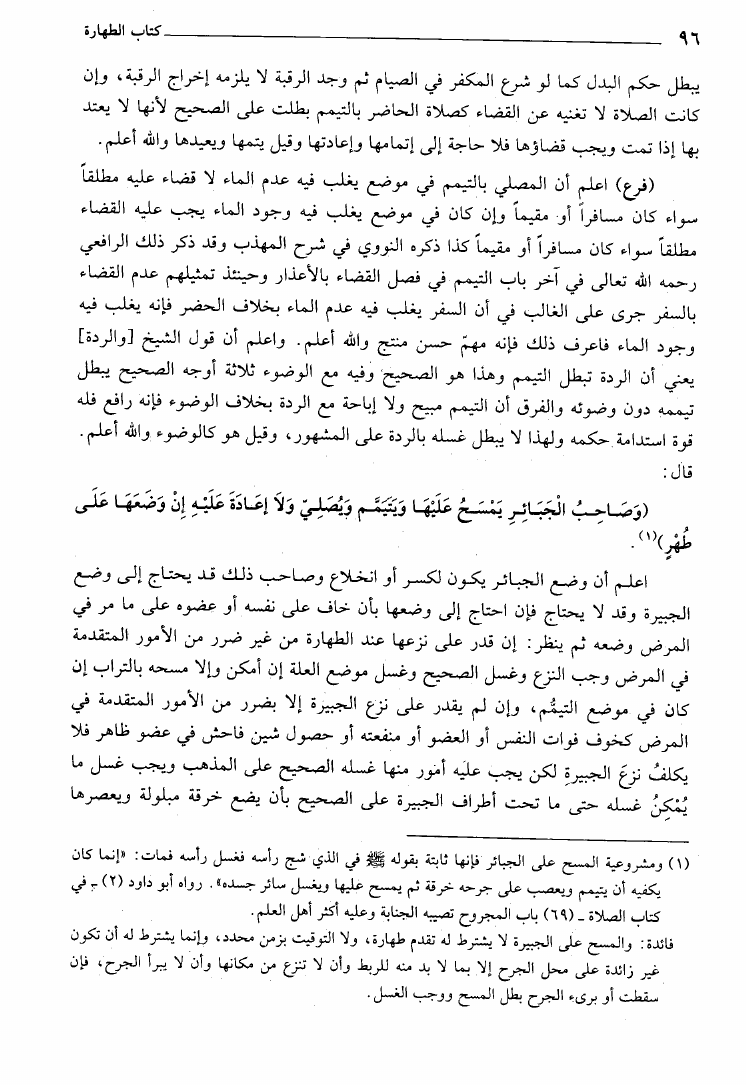 ٩٦ كتاب الطهارة
يبطل حكم البدل كما لو شرع المكفر في الصيام ثم وجد الرقبة لا يلزمه إخراج الرقبة، وإن
كانت الصلاة لا تغنيه عن القضاء كصلاة الحاضر بالتيمم بطلت على الصحيح لأنها لا يعتد
بها إذا تمت ويجب قضاؤها فلا حاجة إلى إتمامها وإعادتها وقيل يتمها ويعيدها والله أعلم.
(فرع) اعلم أن المصلي بالتيمم في موضع يغلب فيه عدم الماء لا قضاء عليه مطلقاً
سواء كان مسافراً أو مقيماً وإن كان في موضع يغلب فيه وجود الماء يجب عليه القضاء
مطلقاً سواء كان مسافراً أو مقيماً كذا ذكره النووي في شرح المهذب وقد ذكر ذلك الرافعي
رحمه الله تعالى في آخر باب التيمم في فصل القضاء بالأعذار وحينئذ تمثيلهم عدم القضاء
بالسفر جرى على الغالب في أن السفر يغلب فيه عدم الماء بخلاف الحضر فإنه يغلب فيه
وجود الماء فاعرف ذلك فإنه مهمّ حسن منتج والله أعلم. واعلم أن قول الشيخ [والردة]
يعني أن الردة تبطل التيمم وهذا هو الصحيح وفيه مع الوضوء ثلاثة أوجه الصحيح يبطل
تيممه دون وضوئه والفرق أن التيمم مبيح ولا إباحة مع الردة بخلاف الوضوء فإنه رافع فله
قوة استدامة حكمه ولهذا لا يبطل غسله بالردة على المشهور، وقيل هو كالوضوء والله أعلم.
قال:
(وَصَاحِبُ الْجَبَائِرِ يَمْسَحُ عَلَيْهَا وَيَتَيَمَّم وَيُصَلِيّ وَلاَ إعَادَةَ عَلَيْهِ إِنْ وَضَعَهَا عَلَى
طُهْرٍ)(١).
اعلم أن وضع الجبائر يكون لكسر أو انخلاع وصاحب ذلك قد يحتاج إلى وضع
الجبيرة وقد لا يحتاج فإن احتاج إلى وضعها بأن خاف على نفسه أو عضوه على ما مر في
المرض وضعه ثم ينظر: إن قدر على نزعها عند الطهارة من غير ضرر من الأمور المتقدمة
في المرض وجب النزع وغسل الصحيح وغسل موضع العلة إن أمكن وإلا مسحه بالتراب إن
كان في موضع التيمُّم، وإن لم يقدر على نزع الجبيرة إلا بضرر من الأمور المتقدمة في
المرض كخوف فوات النفس أو العضو أو منفعته أو حصول شين فاحش في عضو ظاهر فلا
يكلفُ نزعَ الجبيرةِ لكن يجب عليه أمور منها غسله الصحيح على المذهب ويجب غسل ما
يُمْكِنُ غسله حتى ما تحت أطراف الجبيرة على الصحيح بأن يضع خرقة مبلولة ويعصرها
(١) ومشروعية المسح على الجبائر فإنها ثابتة بقوله ﷺ في الذي شج رأسه فغسل رأسه فمات: «إنما كان
يكفيه أن يتيمم ويعصب على جرحه خرقة ثم يمسح عليها ويغسل سائر جسده». رواه أبو داود (٢) - في
كتاب الصلاة ـ (٦٩) باب المجروح تصيبه الجنابة وعليه أكثر أهل العلم.
فائدة: والمسح على الجبيرة لا يشترط له تقدم طهارة، ولا التوقيت بزمن محدد، وإنما يشترط له أن تكون
غير زائدة على محل الجرح إلا بما لا بد منه للربط وأن لا تنزع من مكانها وأن لا يبرأ الجرح، فإن
سقطت أو برىء الجرح بطل المسح ووجب الغسل.